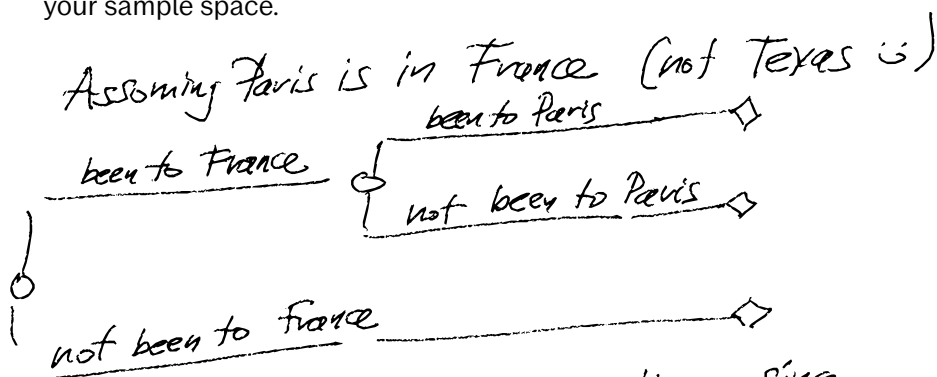 your sample space.
Assoming Paris is in France (not Texas :)
been to Paris
been to France
not been to Paris
not been to France
since